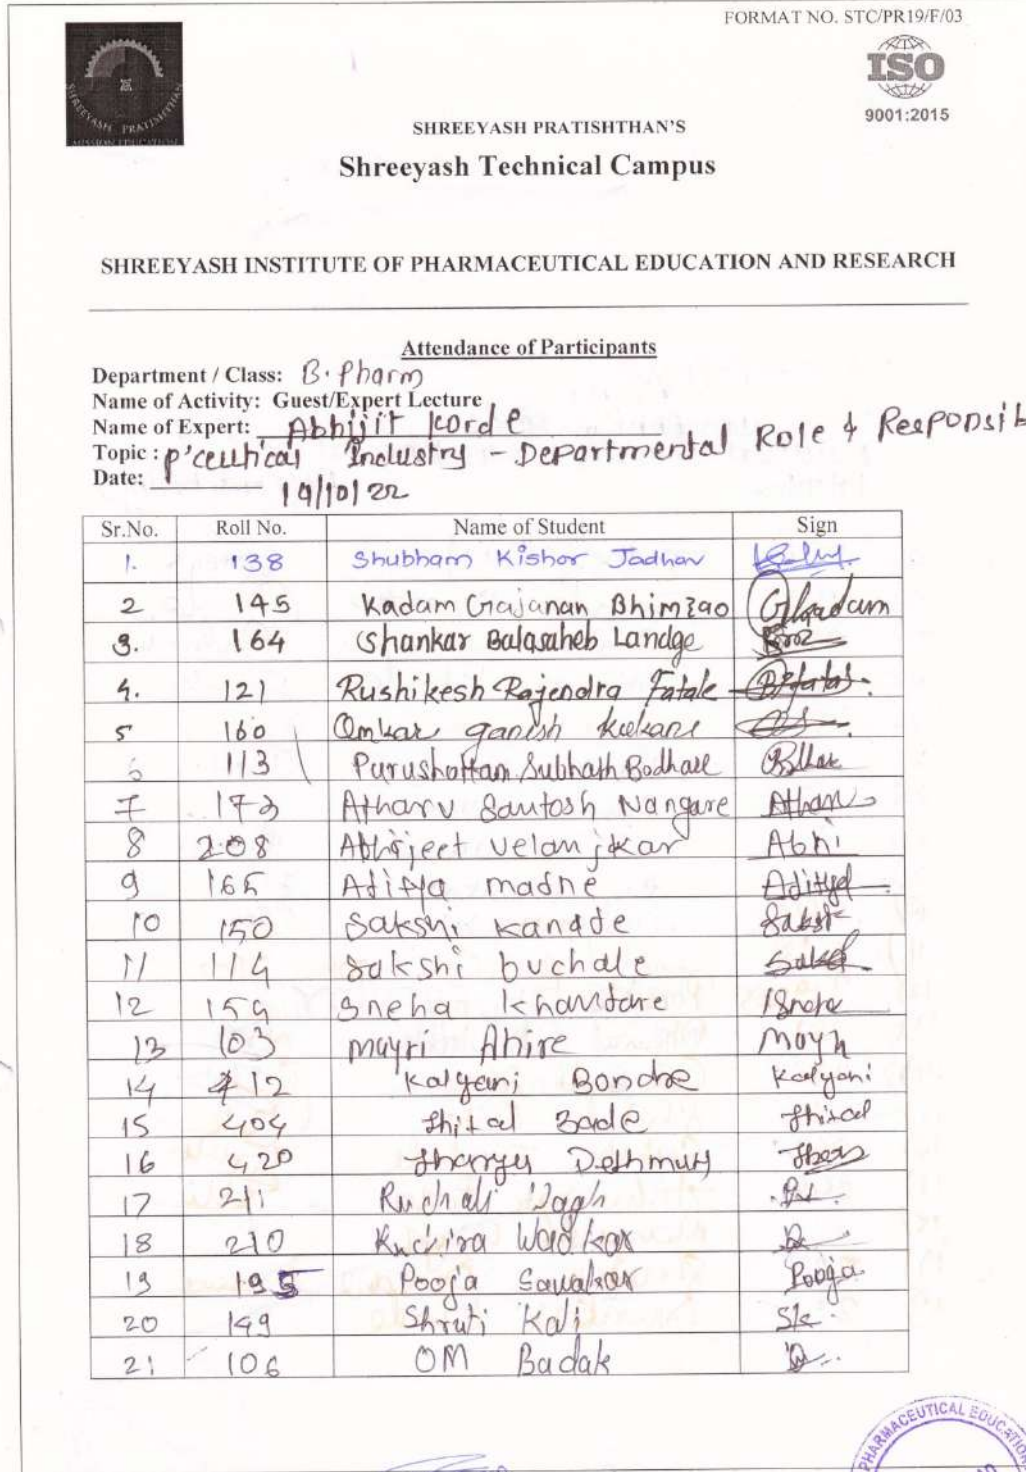 FORMAT NO. STC/PR19/F/03
SHREEYASH PRATISHTHAN
MISSION EDUCATION
ISO
9001:2015
SHREEYASH PRATISHTHAN'S
Shreeyash Technical Campus
SHREEYASH INSTITUTE OF PHARMACEUTICAL EDUCATION AND RESEARCH
Attendance of Participants
Department / Class: B. Pharm
Name of Activity: Guest/Expert Lecture
Name of Expert: Abhijit Korde
Topic : P'ceutical Industry - Departmental Role & Responsib
Date: 19/10/22
Sr.No. Roll No. Name of Student Sign
1. 138 Shubham Kishor Jadhav
2 145 Kadam Gajanan Bhimrao Gkadam
3. 164 Shankar Balasaheb Landge
4. 121 Rushikesh Rajendra Fatale
5 160 Omkar ganesh
6 113 Purushottam Subhash
7 173 Atharv Santosh Nangare
8 208 Abhijeet velanjkar Abhi
9 165 Aditya madne Aditya
10 150 Sakshi kanade Sakshi
11 114 Sakshi buchale
12 159 Sneha khandare
13 103 mayri Ahire
14 412 Kalyani Bondre Kalyani
15 404 Shital Bade Shital
16 420 Deshmukh
17 211 Wagh
18 210 Ruchira Wadkar
19 195 Pooja Sawalkar Pooja
20 149 Shruti Kali Sk
21 106 OM Badak
PHARMACEUTICAL EDUCATION